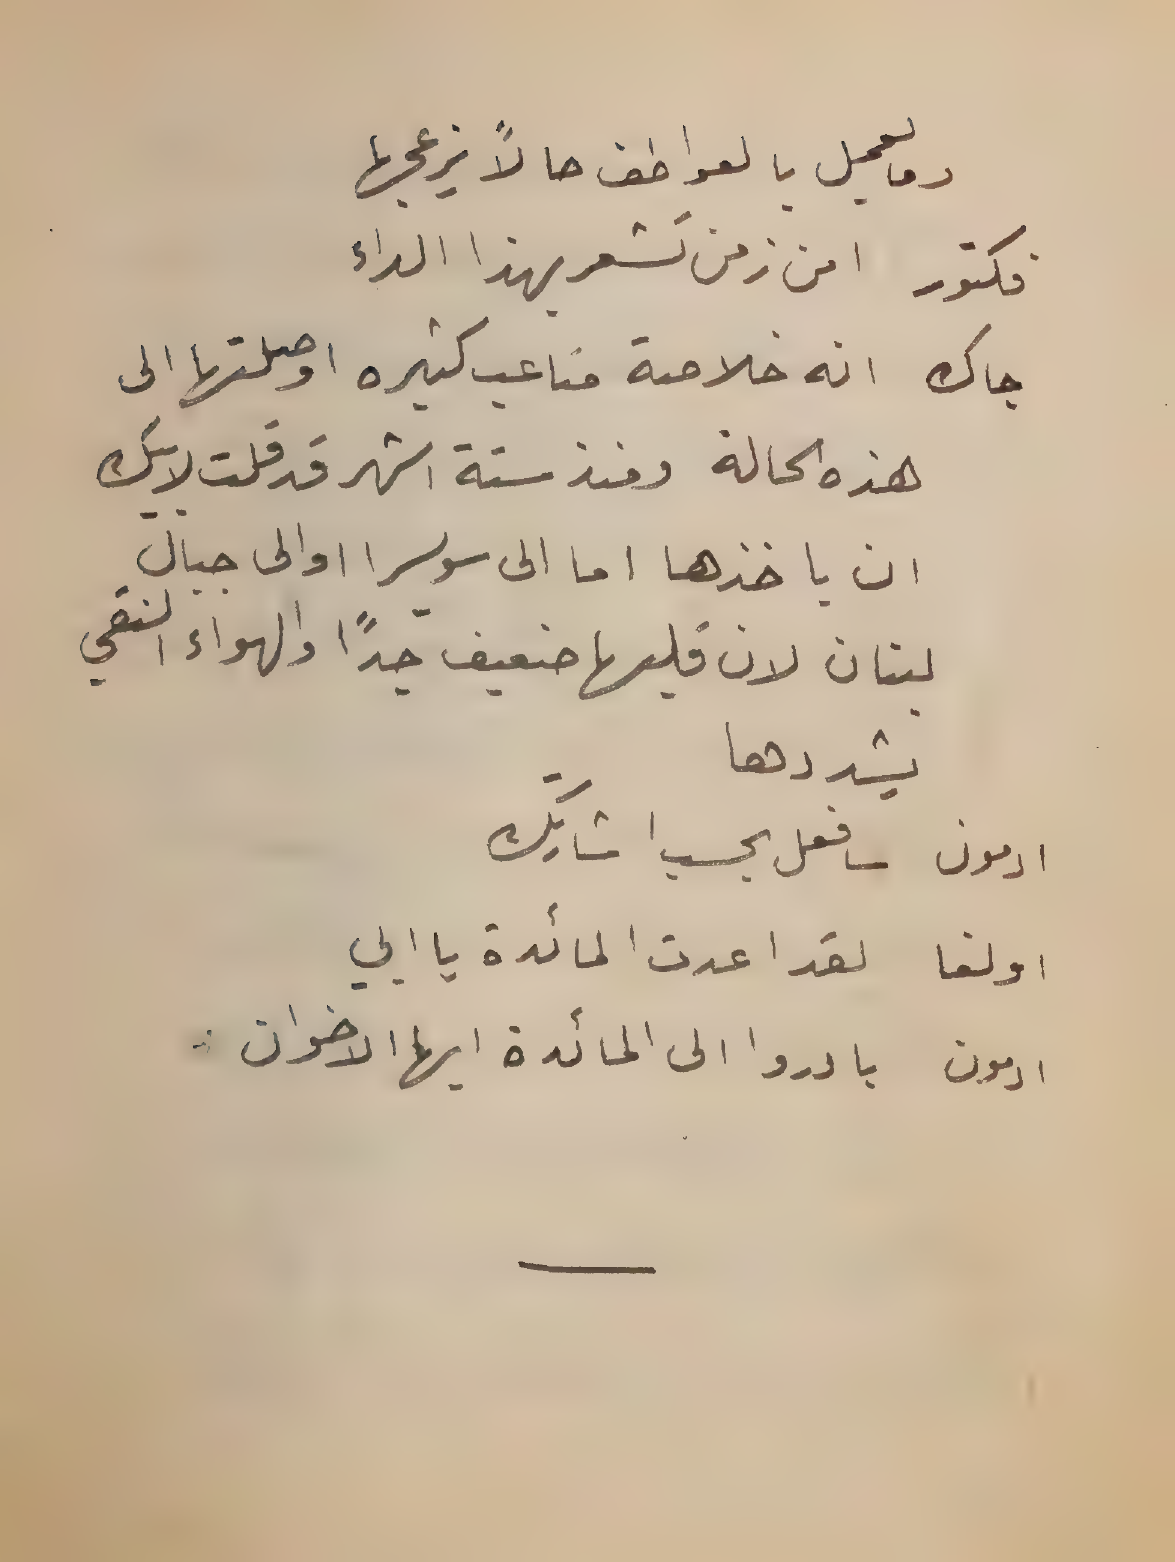 وما يعمل بالعواطف حالاً يزعجها
فكتور امن زمن تشعر بهذا الداء
جاك انه خلاصة متاعب كثيره اوصلتها الى
هذه الحالة ومنذ ستة اشهر قد قلت لابيك
ان ياخذها اما الى سويسرا اوالى جبال
لبنان لان قلبها ضعيف جدًا والهواء النقي
يشددها
ادمون سافعل بحسب اشارتك
اولغا لقد اعدت المائدة يا ابي
ادمون بادروا الى المائدة ايها الاخوان